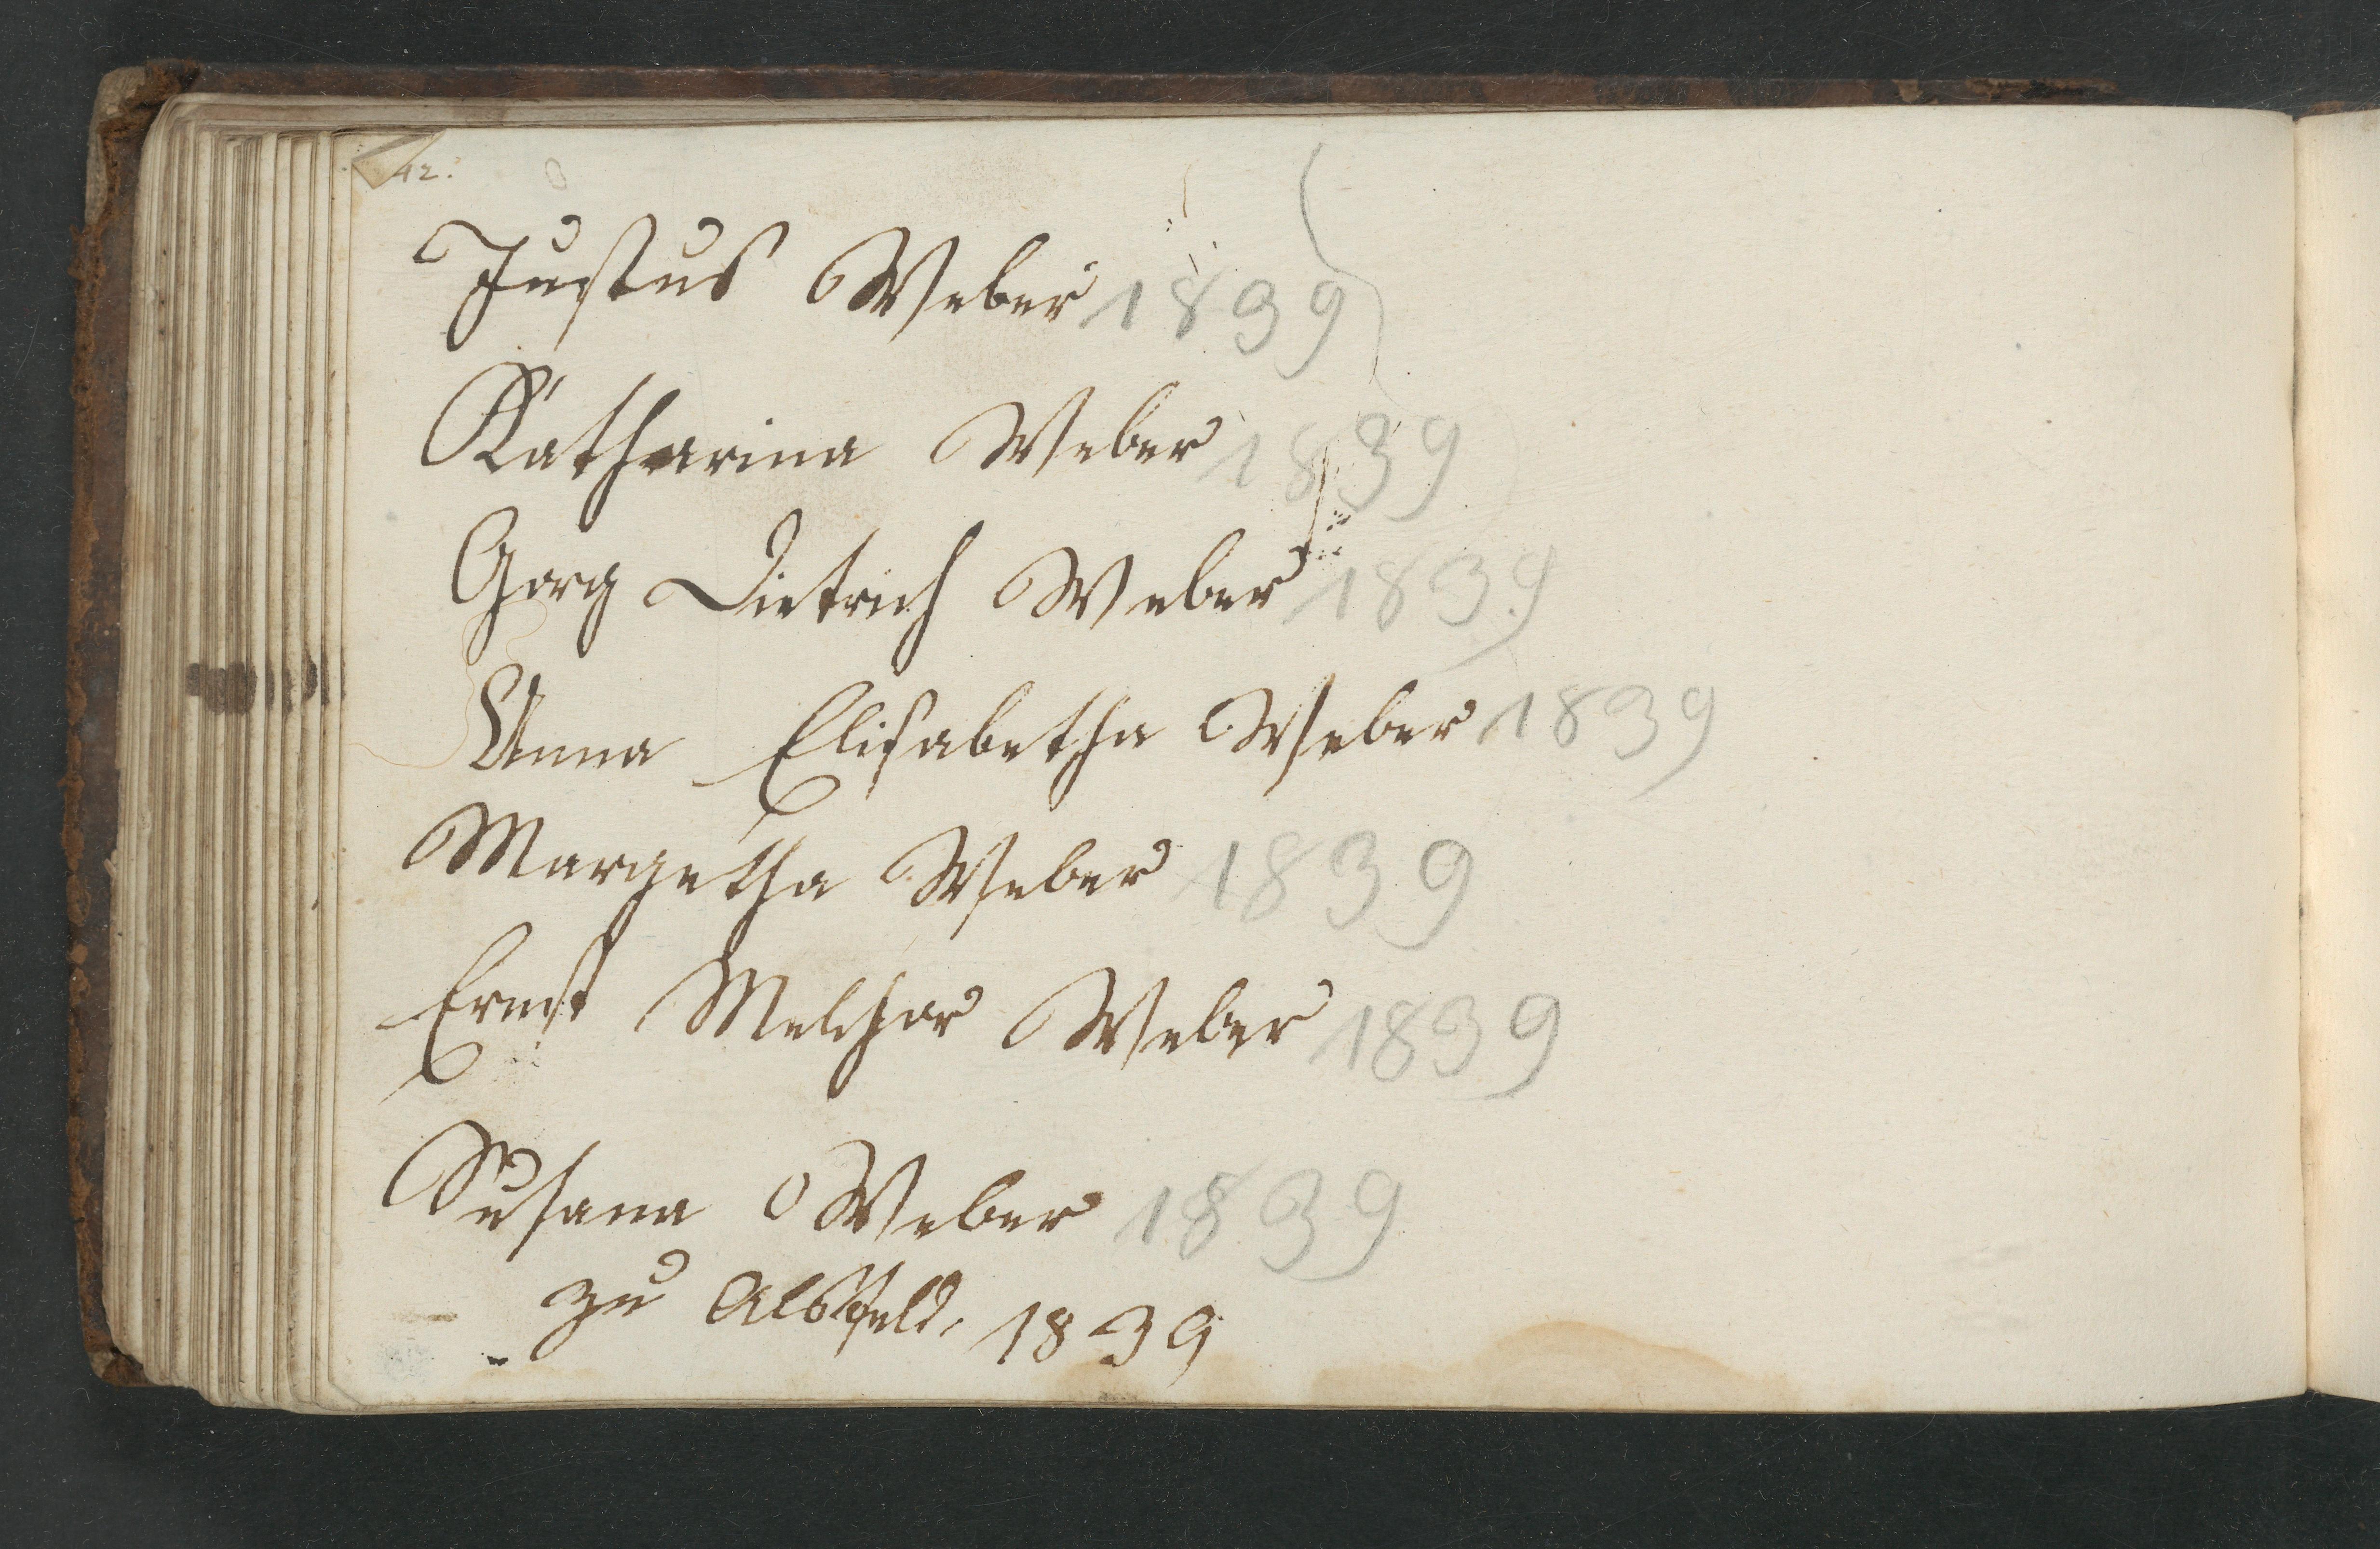 42.
Justus Weber 1839
Katharina Weber 1839
Gorg Dietrich Weber 1839
Anna Elisabetha Weber 1839
Margetha Weber 1839
Ernst Melchor Weber 1839
Susana Weber 1839
zu Alsfeld, 1839